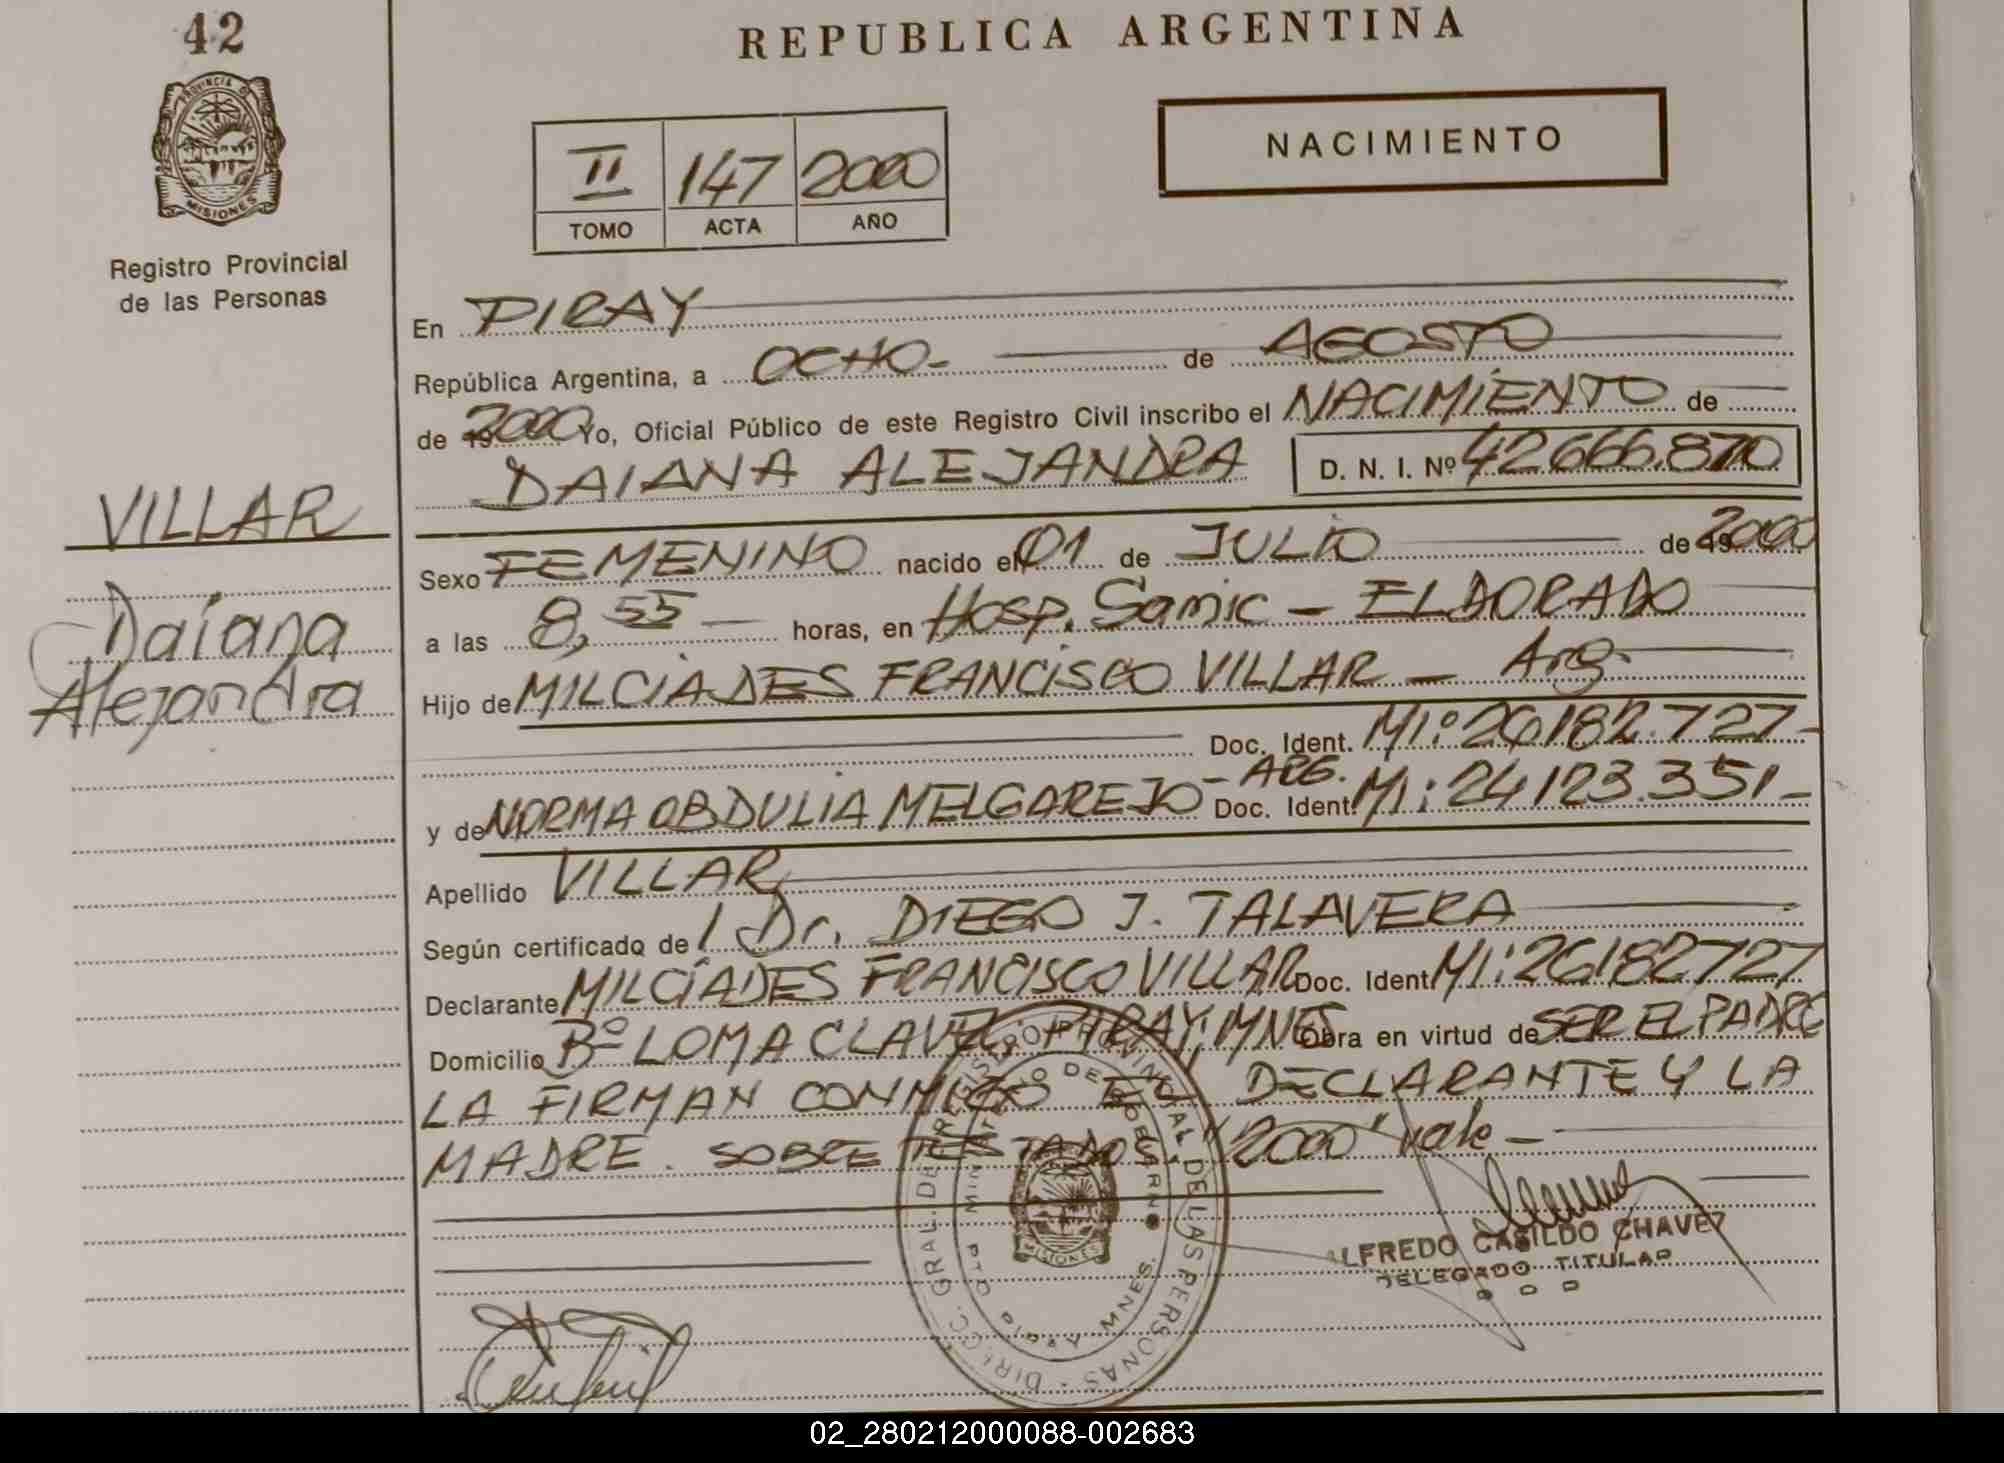 42
REPUBLICA ARGENTINA
PROVINCIA D
MISIONES
Registro Provincial
de las Personas
II 147 2000
TOMO ACTA AÑO
NACIMIENTO
En PIRAY
República Argentina, a OCHO- de AGOSTO
de 2000 Yo, Oficial Público de este Registro Civil inscribo el NACIMIENTO de
DAIANA ALEJANDRA D. N. I. Nº 42666.870
VILLAR
Daiana
Alejandra
Sexo FEMENINO nacido el 01 de JULIO de 2000
a las 8,55 — horas, en Hosp. Samic - ELDORADO
Hijo de MILCIADES FRANCISCO VILLAR - Arg.
Doc. Ident. MI: 26182.727-
y de NORMA OBDULIA MELGAREJO - ARG. Doc. Ident. MI: 24123.351-
Apellido VILLAR
Según certificado de / Dr. DIEGO J. TALAVERA
Declarante MILCÍADES FRANCISCO VILLAR Doc. Ident MI: 26182727
Domicilio Bº LOMA CLAVEL, PIRAY, MNES Obra en virtud de SER EL PADRE
LA FIRMAN CONMIGO EL DECLARANTE Y LA
MADRE. SOBRE TESTADOS: "2000" vale -
DIRECC. GRAL. DEL REGISTRO PROVINCIAL DE LAS PERSONAS
MINISTERIO DE GOBIERNO
MISIONES
PTO PIRAY MNES.
ALFREDO CASILDO CHAVEZ
DELEGADO TITULAR
02_280212000088-002683